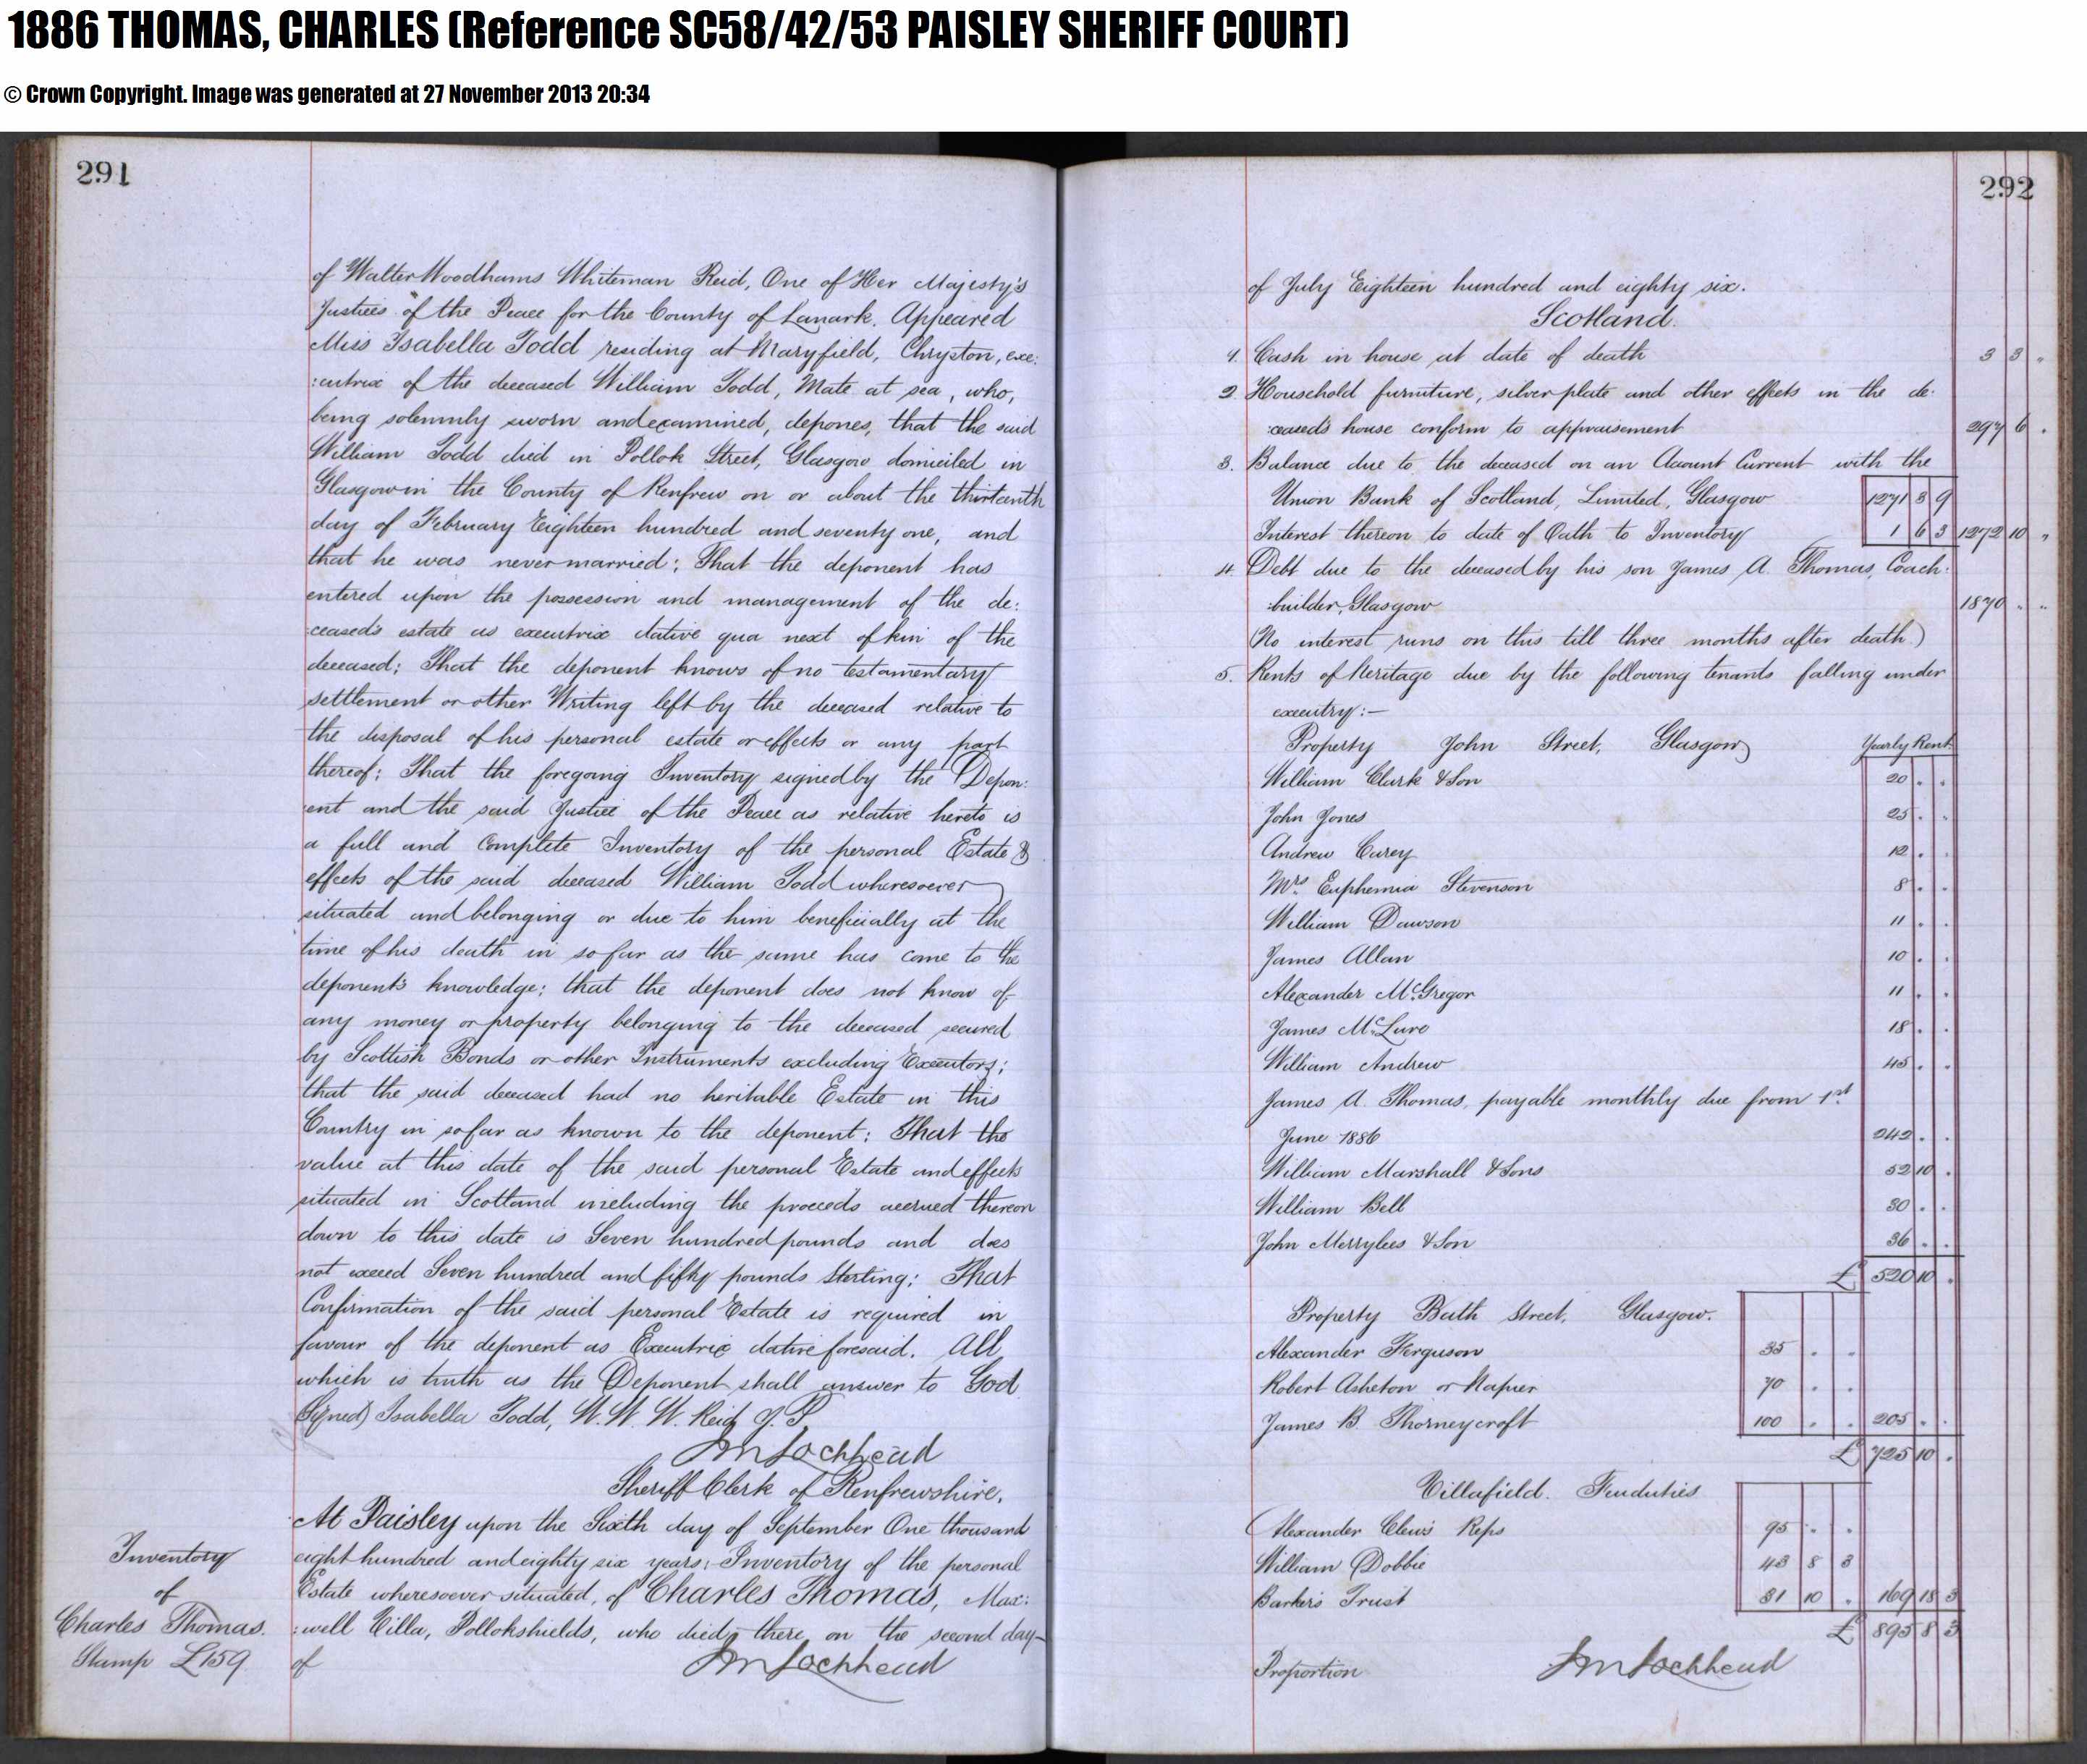 1886 THOMAS, CHARLES (Reference SC58/42/53 PAISLEY SHERIFF COURT)
© Crown Copyright. Image was generated at 27 November 2013 20:34
291
of Walter Woodhams Whiteman Reid, One of Her Majesty's
Justices of the Peace for the County of Lanark. Appeared
Miss Isabella Todd residing at Maryfield, Chryston, exe:
:cutrix of the deceased William Todd, Mate at sea, who,
being solemnly sworn and examined, depones, that the said
William Todd died in Pollok Street, Glasgow domiciled in
Glasgow in the County of Renfrew on or about the thirteenth
day of February Eighteen hundred and seventy one, and
that he was never married: That the deponent has
entered upon the possession and management of the de:
:ceased's estate as executrix dative qua next of kin of the
deceased; That the deponent knows of no testamentary
settlement or other Writing left by the deceased relative to
the disposal of his personal estate or effects or any part
thereof; That the foregoing Inventory signed by the Depon:
:ent and the said Justice of the Peace as relative hereto is
a full and complete Inventory of the personal Estate &
effects of the said deceased William Todd wheresoever
situated and belonging or due to him beneficially at the
time of his death in so far as the same has come to the
deponent's knowledge; that the deponent does not know of
any money or property belonging to the deceased secured
by Scottish Bonds or other Instruments excluding Executors;
that the said deceased had no heritable Estate in this
Country in so far as known to the deponent: That the
value at this date of the said personal Estate and effects
situated in Scotland including the proceeds accrued thereon
down to this date is Seven hundred pounds and does
not exceed Seven hundred and fifty pounds Sterling: That
Confirmation of the said personal Estate is required in
favour of the deponent as Executrix dative foresaid. All
which is truth as the Deponent shall answer to God
(Signed) Isabella Todd, W. W. W. Reid J.P.
JM Lochhead
Sheriff Clerk of Renfrewshire.
At Paisley upon the Sixth day of September One thousand
eight hundred and eighty six years: Inventory of the personal
Estate wheresoever situated, of Charles Thomas, Max:
:well Villa, Pollokshields, who died there on the second day
of JM Lochhead
Inventory
of
Charles Thomas.
Stamp £159
292
of July Eighteen hundred and eighty six.
Scotland.
1. Cash in house at date of death 3 3 "
2. Household furniture, silver plate and other effects in the de:
:ceased's house conform to appraisement 297 6 .
3. Balance due to the deceased on an Account Current with the
Union Bank of Scotland, Limited, Glasgow 1271 3 9
Interest thereon to date of Oath to Inventory 1 6 3 1272 10 "
4. Debt due to the deceased by his son James A. Thomas, Coach:
:builder, Glasgow 1870 . .
(No interest runs on this till three months after death)
5. Rents of Heritage due by the following tenants falling under
executry:—
Property John Street, Glasgow Yearly Rent.
William Clark & Son 20 . .
John Jones 25 . .
Andrew Carey 12 . .
Mrs. Euphemia Stevenson 8 . .
William Dawson 11 . .
James Allan 10 . .
Alexander McGregor 11 . .
James McLure 18 . .
William Andrew 45 . .
James A. Thomas, payable monthly due from 1st
June 1886 242 . .
William Marshall & Sons 52 10 .
William Bell 30 . .
John Merrylees & Son 36 . .
£ 520 10 .
Property Bath Street, Glasgow.
Alexander Ferguson 35 . .
Robert Asheton or Napier 70 . .
James B. Thorneycroft 100 . . 205 . .
£ 725 10 .
Villafield. Feuduties
Alexander Clew's Reps 95 . .
William Dobbie 43 8 3
Barker's Trust 31 10 . 169 18 3
£ 895 8 3
Proportion JM Lochhead